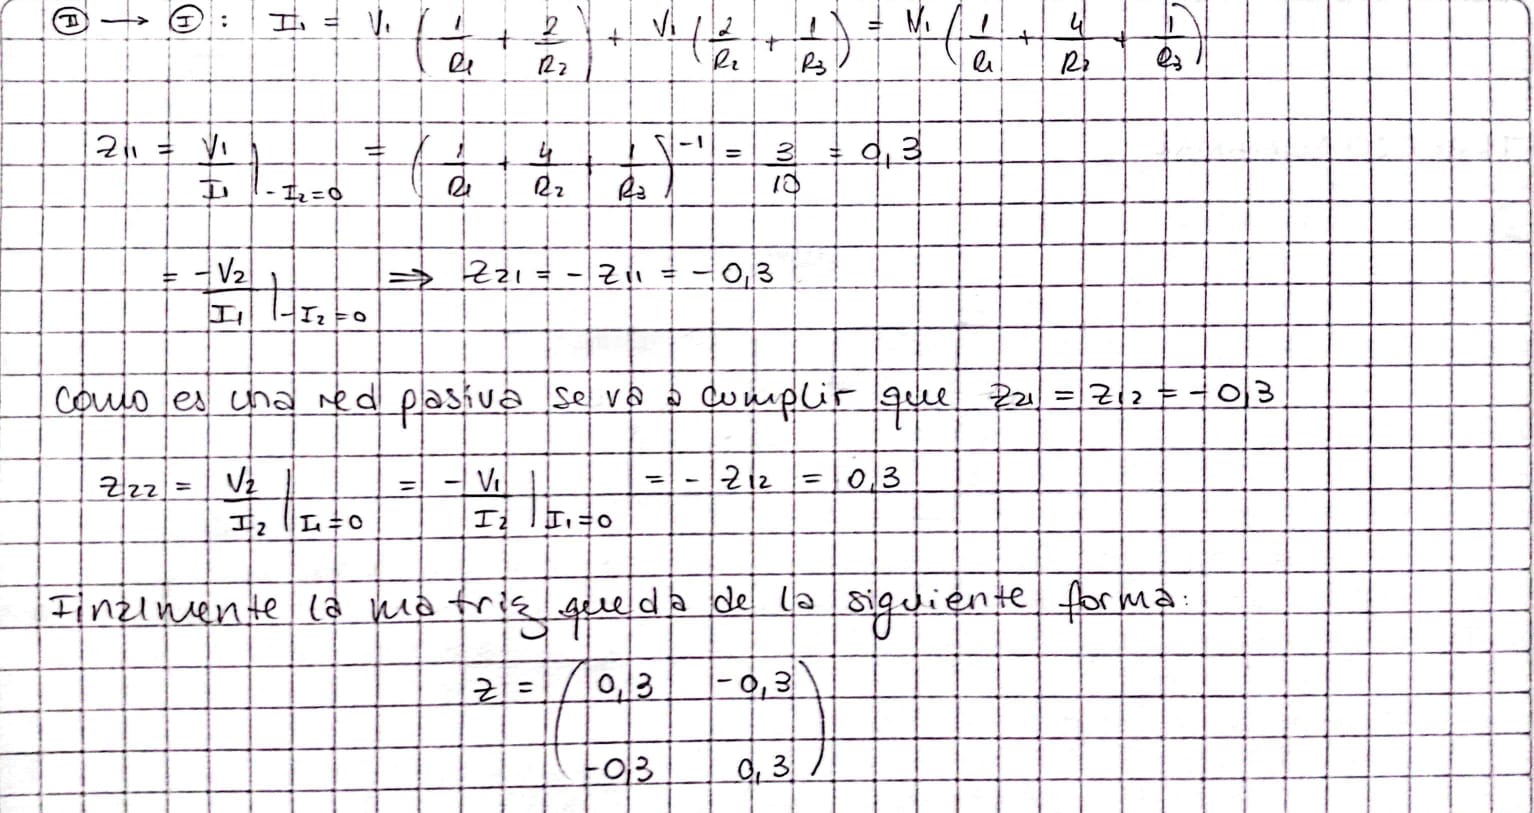 Ⅱ → Ⅰ : I₁ = V₁ (1/R₁ + 2/R₂) + V₁ (2/R₂ + 1/R₃) = V₁ (1/R₁ + 4/R₂ + 1/R₃)
Z₁₁ = V₁/I₁ |-I₂=0 = (1/R₁ + 4/R₂ + 1/R₃)⁻¹ = 3/10 = 0,3
= -V₂/I₁ |-I₂=0 ⇒ Z₂₁ = - Z₁₁ = -0,3
como es una red pasiva se va a cumplir que Z₂₁ = Z₁₂ = -0,3
Z₂₂ = V₂/I₂ |I₁=0 = - V₁/I₂ |I₁=0 = - Z₁₂ = 0,3
Finalmente la matriz queda de la siguiente forma:
Z = ( 0,3 -0,3
-0,3 0,3 )